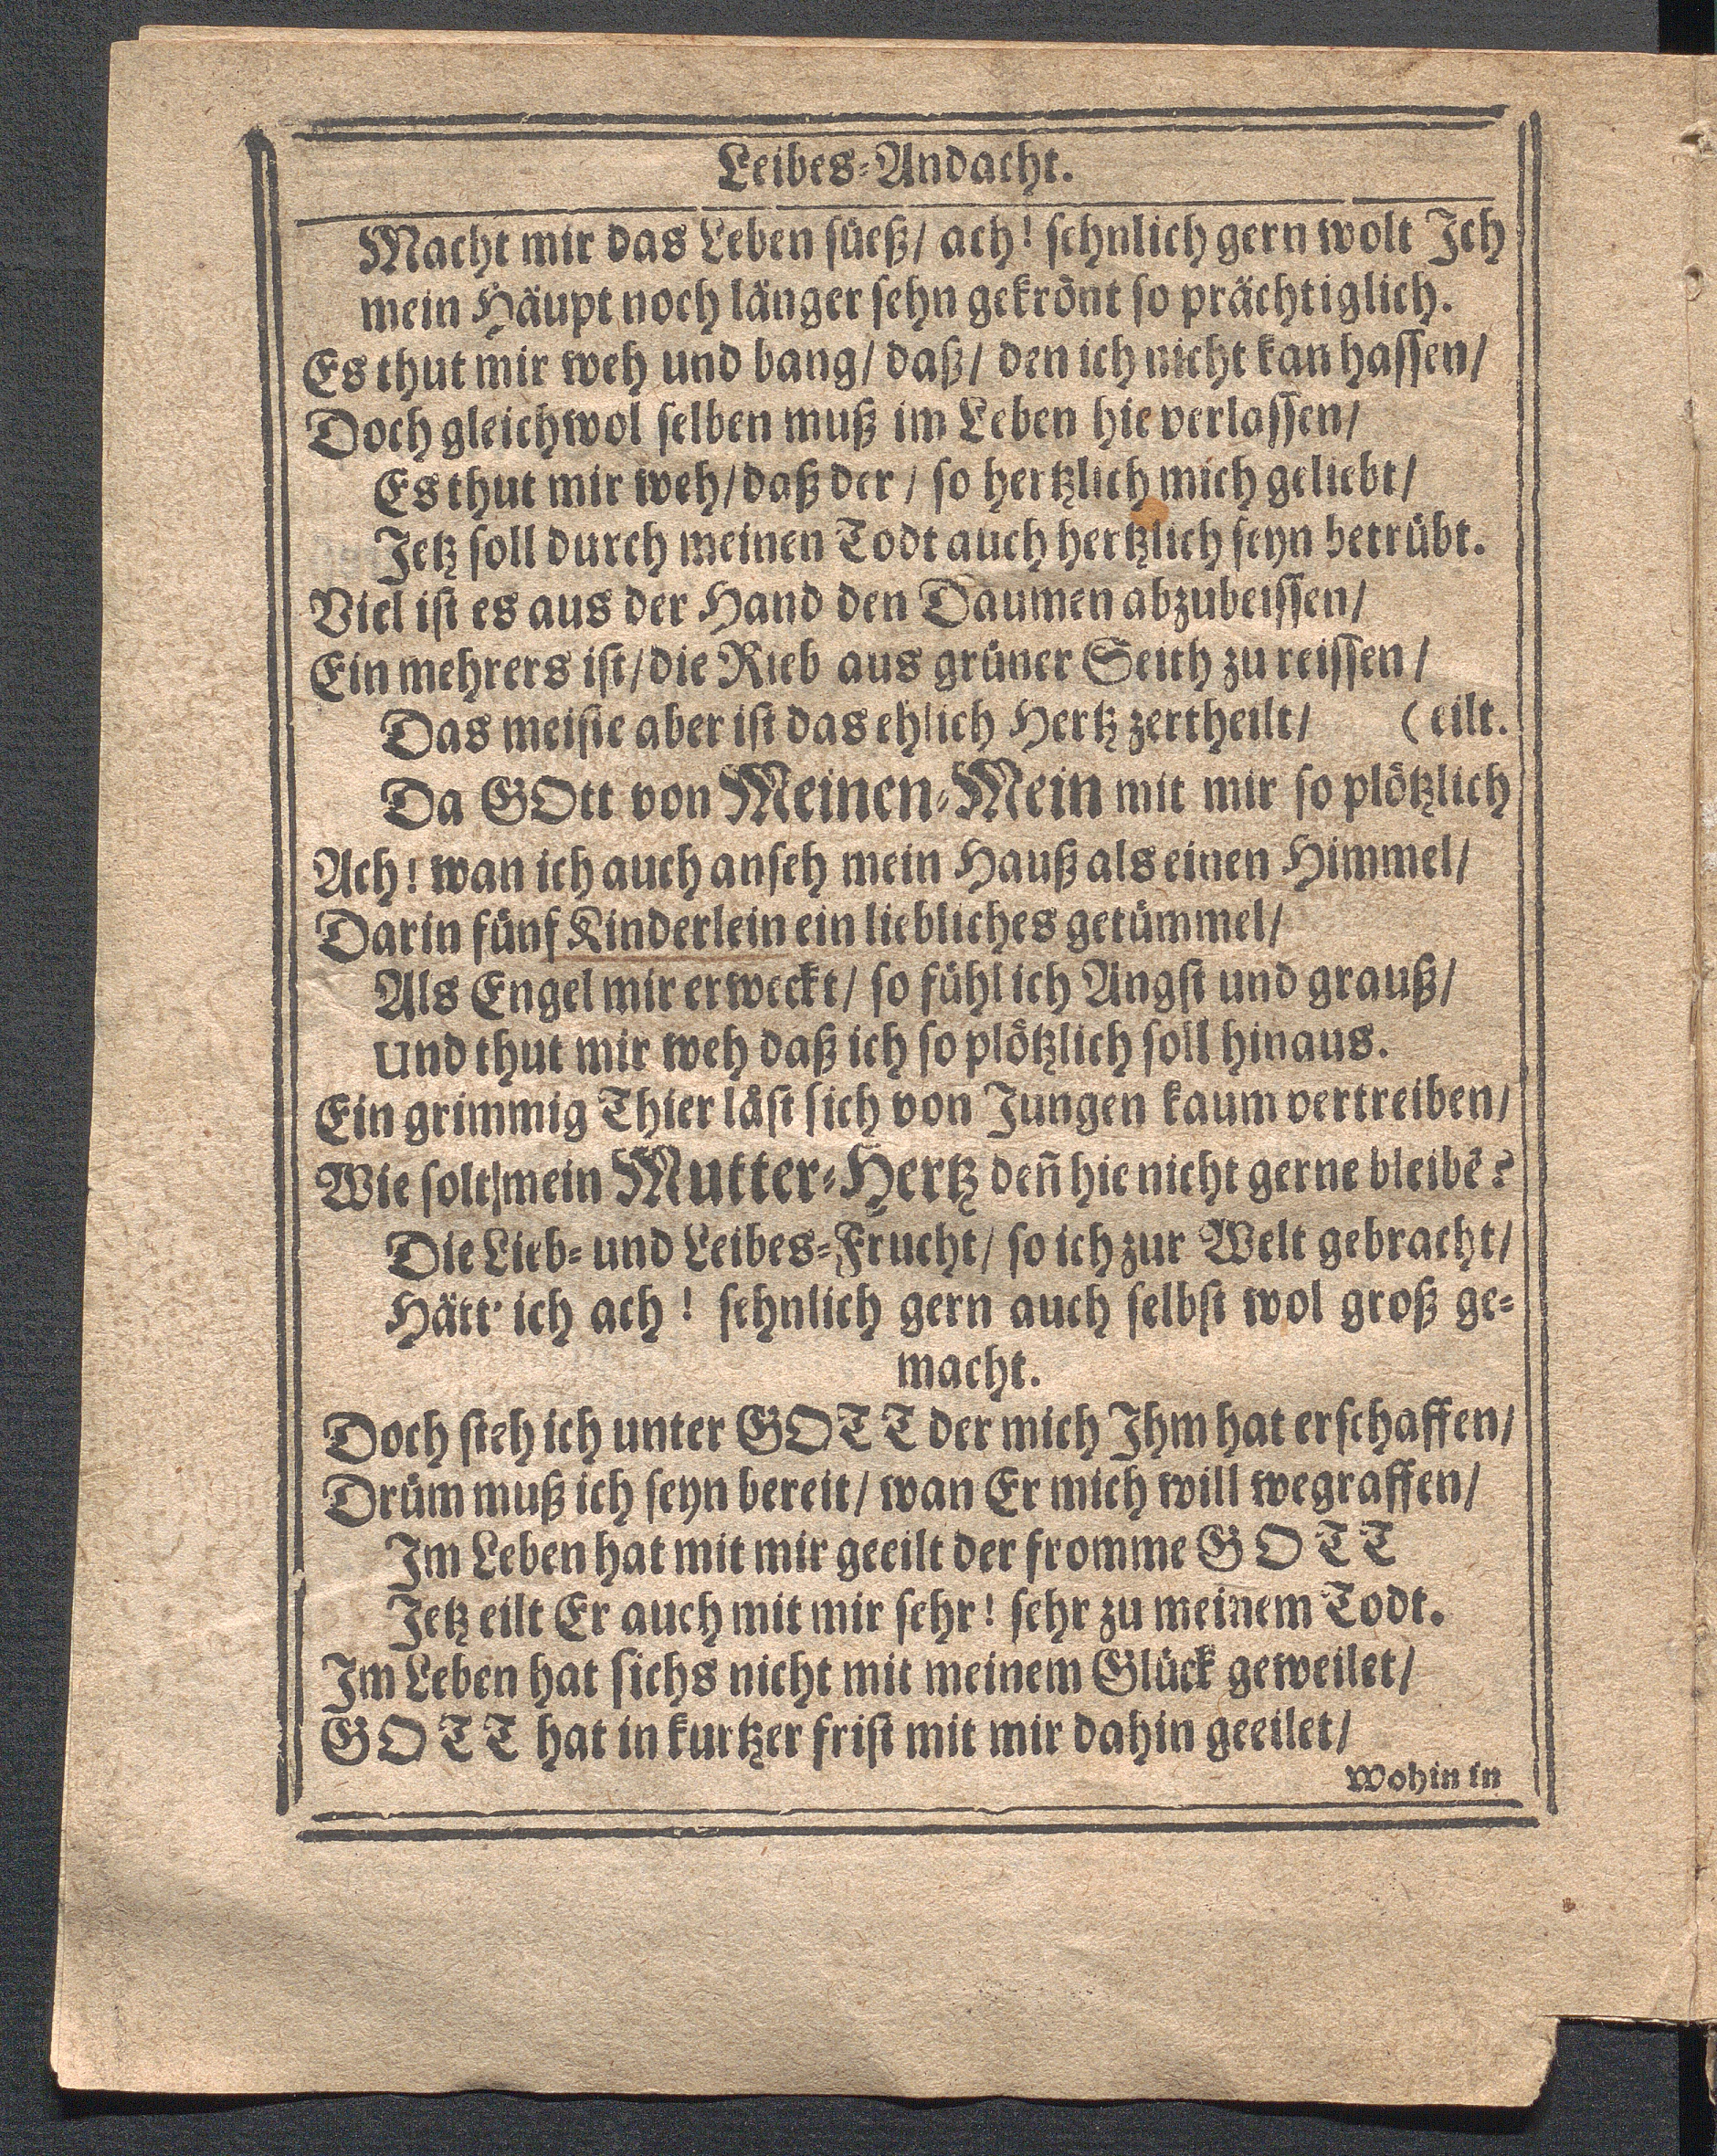 Leibes-Andacht.
Macht mir das Leben süeß/ ach! sehnlich gern wolt Ich
mein Häupt noch länger sehn gekrönt so prächtiglich.
Es thut mir weh und bang/ daß/ den ich nicht kan hassen/
Doch gleichwol selben muß im Leben hie verlassen/
Es thut mir weh/ daß der / so hertzlich mich geliebt/
Jetz soll durch meinen Todt auch hertzlich seyn betrübt.
Viel ist es aus der Hand den Daumen abzubeissen/
Ein mehrers ist/ die Rieb aus grüner Seith zu reissen /
Das meiste aber ist das ehlich Hertz zertheilt/ (eilt.
Da GOtt von Meinen-Mein mit mir so plötzlich
Ach! wan ich auch anseh mein Hauß als einen Himmel/
Darin fünf Kinderlein ein liebliches getümmel/
Als Engel mir erweckt/ so fühl ich Angst und grauß/
Und thut mir weh daß ich so plötzlich soll hinaus.
Ein grimmig Thier läst sich von Jungen kaum vertreiben/
Wie solt mein Mutter-Hertz deñ hie nicht gerne bleibẽ?
Die Lieb- und Leibes-Frucht/ so ich zur Welt gebracht/
Hätt' ich ach! sehnlich gern auch selbst wol groß ge-
macht.
Doch steh ich unter GOTT der mich Ihm hat erschaffen/
Drüm muß ich seyn bereit/ wan Er mich will wegraffen/
Im Leben hat mit mir geeilt der fromme GOTT
Jetz eilt Er auch mit mir sehr! sehr zu meinem Todt.
Im Leben hat sichs nicht mit meinem Glück geweilet/
GOTT hat in kurtzer frist mit mir dahin geeilet/
Wohin in